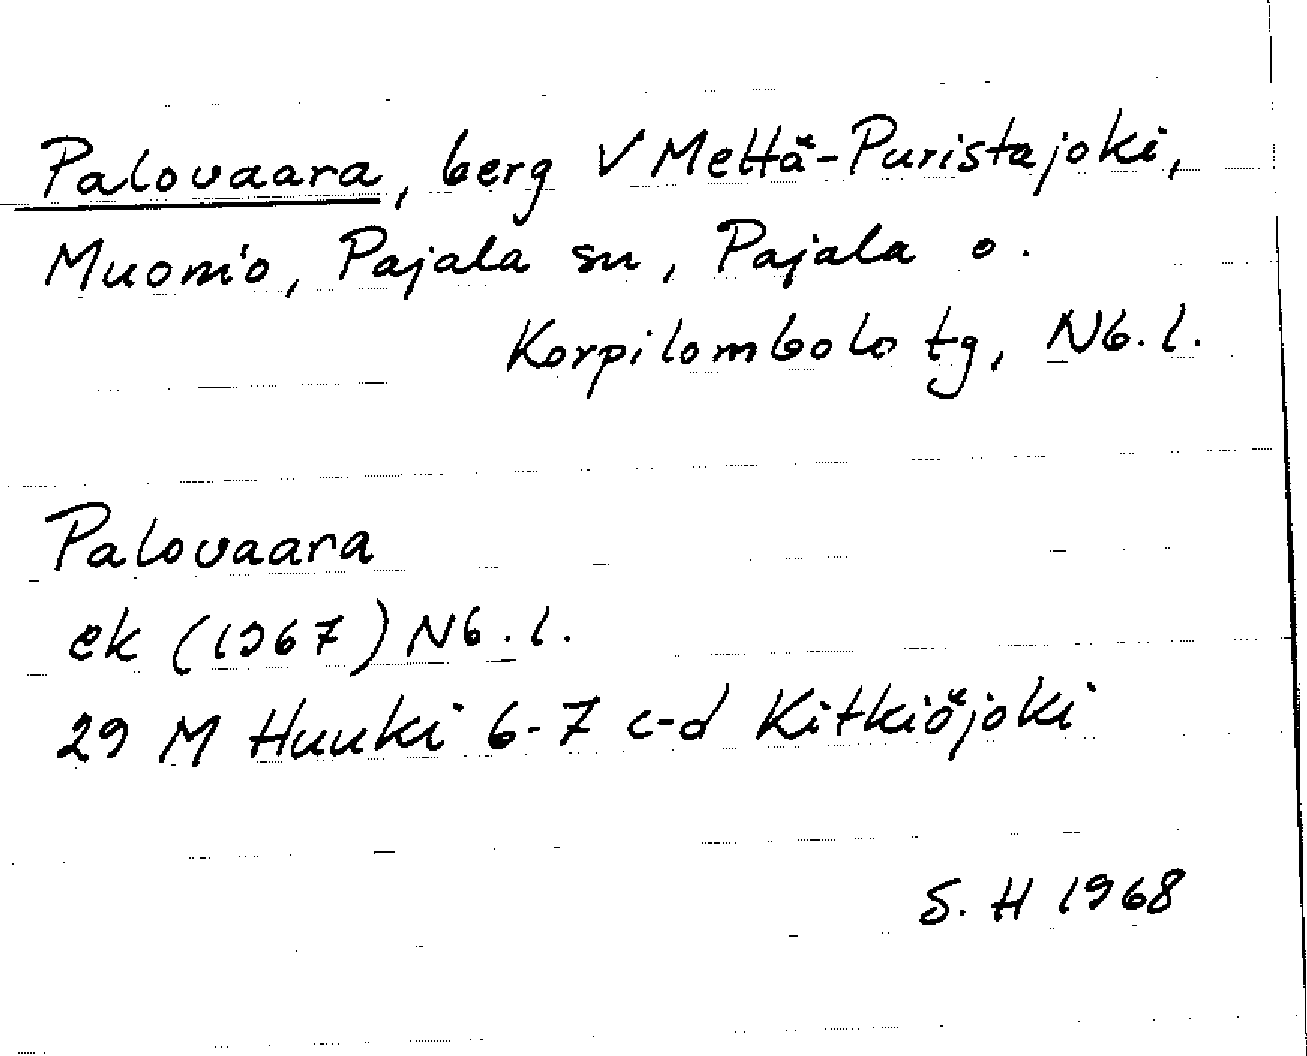 Palovaara, berg V Mettä-Puristajoki,
Muonio, Pajala sn, Pajala o.
Korpilombolo tg, Nb.l.
Palovaara
ek (1967) Nb.l.
29 M Huuki 6-7 c-d Kitkiöjoki
S. H 1968